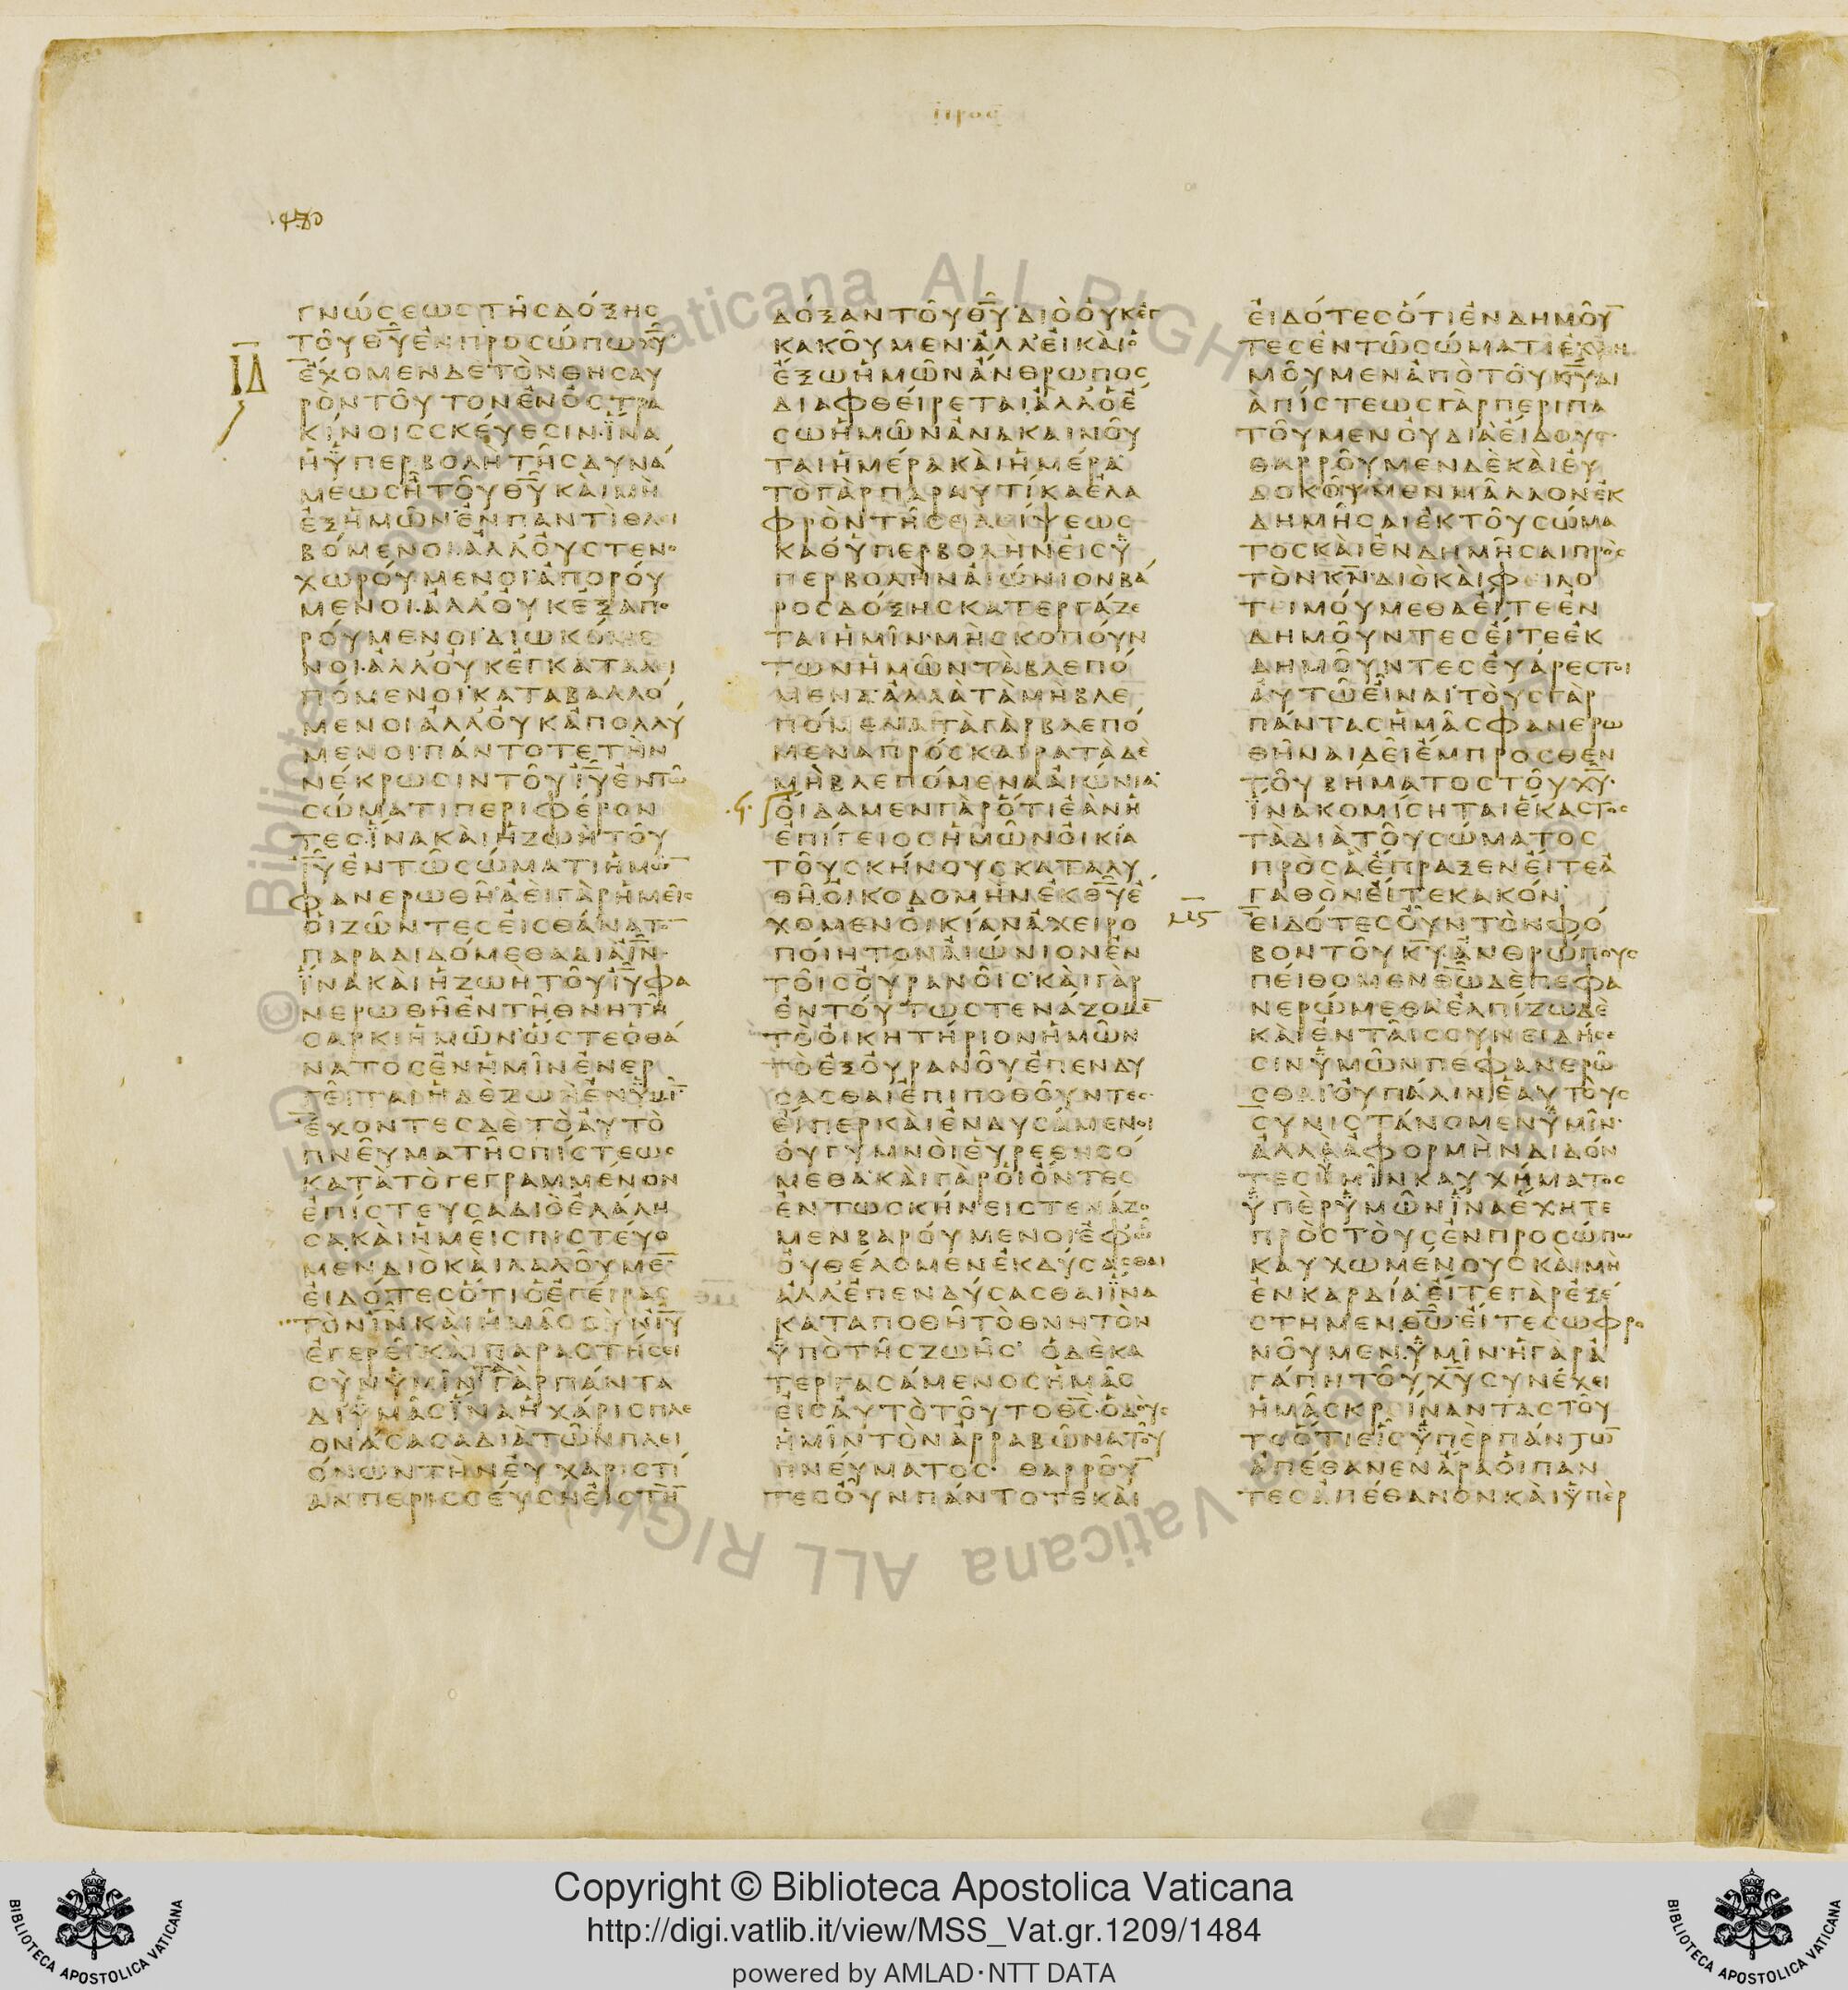 ΓΝΩϹΕΩϹΤΗϹΔΟΞΗϹ
ΤΟΥΘ̅Υ̅ΕΝΠΡΟϹΩΠΩΧ̅Υ̅
ΙΔ
ΕΧΟΜΕΝΔΕΤΟΝΘΗϹΑΥ
ΡΟΝΤΟΥΤΟΝΕΝΟϹΤΡΑ
ΚΙΝΟΙϹϹΚΕΥΕϹΙΝ·ΪΝΑ
ΗΫΠΕΡΒΟΛΗΤΗϹΔΥΝΑ
ΜΕΩϹΗΤΟΥΘ̅Υ̅ΚΑΙΜΗ
ΕΞΗΜΩΝΕΝΠΑΝΤΙΘΛΙ
ΒΟΜΕΝΟΙΑΛΛΟΥϹΤΕΝΟ
ΧΩΡΟΥΜΕΝΟΙΑΠΟΡΟΥ
ΜΕΝΟΙ·ΑΛΛΟΥΚΕΞΑΠΟ
ΡΟΥΜΕΝΟΙΔΙΩΚΟΜΕ
ΝΟΙ·ΑΛΛΟΥΚΕΓΚΑΤΑΛΙ
ΠΟΜΕΝΟΙΚΑΤΑΒΑΛΛΟ
ΜΕΝΟΙΑΛΛΟΥΚΑΠΟΛΛΥ
ΜΕΝΟΙΠΑΝΤΟΤΕΤΗΝ
ΝΕΚΡΩϹΙΝΤΟΥΙ̅Υ̅ΕΝΤΩ
ϹΩΜΑΤΙΠΕΡΙΦΕΡΟΝ
ΤΕϹΪΝΑΚΑΙΗΖΩΗΤΟΥ
Ι̅Υ̅ΕΝΤΩϹΩΜΑΤΙΗΜΩ̅
ΦΑΝΕΡΩΘΗΑΕΙΓΑΡΗΜΕΙϹ
ΟΙΖΩΝΤΕϹΕΙϹΘΑΝΑΤΟ̅
ΠΑΡΑΔΙΔΟΜΕΘΑΔΙΑΙ̅Ν̅·
ΪΝΑΚΑΙΗΖΩΗΤΟΥΙ̅Υ̅ΦΑ
ΝΕΡΩΘΗΕΝΤΗΘΝΗΤΗ
ϹΑΡΚΙΗΜΩΝΩϹΤΕΟΘΑ
ΝΑΤΟϹΕΝΗΜΙΝΕΝΕΡ
ΓΕΙΤΑΙΗΔΕΖΩΗΕΝΫΜΙ̅
ΕΧΟΝΤΕϹΔΕΤΟΑΥΤΟ
ΠΝΕΥΜΑΤΗϹΠΙϹΤΕΩϹ
ΚΑΤΑΤΟΓΕΓΡΑΜΜΕΝΟΝ
ΕΠΙϹΤΕΥϹΑΔΙΟΕΛΑΛΗ
ϹΑ·ΚΑΙΗΜΕΙϹΠΙϹΤΕΥΟ
ΜΕΝΔΙΟΚΑΙΛΑΛΟΥΜΕ̅
ΕΙΔΟΤΕϹΟΤΙΟΕΓΕΙΡΑϹ
ΤΟΝΙ̅Ν̅ΚΑΙΗΜΑϹϹΥΝΙ̅Υ̅
ΕΓΕΡΕΙΚΑΙΠΑΡΑϹΤΗϹΕΙ
ϹΥΝΫΜΙΝΤΑΓΑΡΠΑΝΤΑ
ΔΙΫΜΑϹΪΝΑΗΧΑΡΙϹΠΛΕ
ΟΝΑϹΑϹΑΔΙΑΤΩΝΠΛΕΙ
ΟΝΩΝΤΗΝΕΥΧΑΡΙϹΤΙ
ΑΝΠΕΡΙϹϹΕΥϹΗΕΙϹΤΗ̅
ΔΟΞΑΝΤΟΥΘ̅Υ̅ΔΙΟΟΥΚΕΓ
ΚΑΚΟΥΜΕΝ·ΑΛΛΕΙΚΑΙΟ
ΕΞΩΗΜΩΝΑΝΘΡΩΠΟϹ
ΔΙΑΦΘΕΙΡΕΤΑΙΑΛΛΟΕ
ϹΩΗΜΩΝΑΝΑΚΑΙΝΟΥ
ΤΑΙΗΜΕΡΑΚΑΙΗΜΕΡΑ
ΤΟΓΑΡΠΑΡΑΥΤΙΚΑΕΛΑ
ΦΡΟΝΤΗϹΘΛΕΙΨΕΩϹ
ΚΑΘΥΠΕΡΒΟΛΗΝΕΙϹΫ
ΠΕΡΒΟΛΗΝΑΙΩΝΙΟΝΒΑ
ΡΟϹΔΟΞΗϹΚΑΤΕΡΓΑΖΕ
ΤΑΙΗΜΙΝ·ΜΗϹΚΟΠΟΥΝ
ΤΩΝΗΜΩΝΤΑΒΛΕΠΟ
ΜΕΝΑ·ΑΛΛΑΤΑΜΗΒΛΕ
ΠΟΜΕΝΑΤΑΓΑΡΒΛΕΠΟ
ΜΕΝΑΠΡΟϹΚΑΙΡΑΤΑΔΕ
ΜΗΒΛΕΠΟΜΕΝΑΑΙΩΝΙΑ
ΟΙΔΑΜΕΝΓΑΡΟΤΙΕΑΝΗ
ΕΠΙΓΕΙΟϹΗΜΩΝΟΙΚΙΑ
ΤΟΥϹΚΗΝΟΥϹΚΑΤΑΛΥ
ΘΗ·ΟΙΚΟΔΟΜΗΝΕΚΘ̅Υ̅Ε
ΧΟΜΕΝΟΙΚΙΑΝΑΧΕΙΡΟ
ΠΟΙΗΤΟΝΑΙΩΝΙΟΝΕΝ
ΤΟΙϹΟΥΡΑΝΟΙϹΚΑΙΓΑΡ
ΕΝΤΟΥΤΩϹΤΕΝΑΖΟΜΕ̅
ΤΟΟΙΚΗΤΗΡΙΟΝΗΜΩΝ
ΤΟΕΞΟΥΡΑΝΟΥΕΠΕΝΔΥ
ϹΑϹΘΑΙΕΠΙΠΟΘΟΥΝΤΕϹ
ΕΙΠΕΡΚΑΙΕΝΔΥϹΑΜΕΝΟΙ
ΟΥΓΥΜΝΟΙΕΥΡΕΘΗϹΟ
ΜΕΘΑΚΑΙΓΑΡΟΙΟΝΤΕϹ
ΕΝΤΩϹΚΗΝΕΙϹΤΕΝΑΖΟ
ΜΕΝΒΑΡΟΥΜΕΝΟΙΕΦΩ
ΟΥΘΕΛΟΜΕΝΕΚΔΥϹΑϹΘΑΙ
ΑΛΛΕΠΕΝΔΥϹΑϹΘΑΙΪΝΑ
ΚΑΤΑΠΟΘΗΤΟΘΝΗΤΟΝ
ΫΠΟΤΗϹΖΩΗϹ ΟΔΕΚΑ
ΤΕΡΓΑϹΑΜΕΝΟϹΗΜΑϹ
ΕΙϹΑΥΤΟΤΟΥΤΟΘ̅Ϲ̅·ΟΔΟΥϹ
ΗΜΙΝΤΟΝΑΡΡΑΒΩΝΑΤΟΥ
ΠΝΕΥΜΑΤΟϹ· ΘΑΡΡΟΥ̅
ΤΕϹΟΥΝΠΑΝΤΟΤΕΚΑΙ
ΕΙΔΟΤΕϹΟΤΙΕΝΔΗΜΟΥ̅
ΤΕϹΕΝΤΩϹΩΜΑΤΙΕΚΔΗ
ΜΟΥΜΕΝΑΠΟΤΟΥΚ̅Υ̅ΔΙ
ΑΠΙϹΤΕΩϹΓΑΡΠΕΡΙΠΑ
ΤΟΥΜΕΝΟΥΔΙΑΕΙΔΟΥϹ·
ΘΑΡΡΟΥΜΕΝΔΕΚΑΙΕΥ
ΔΟΚΟΥΜΕΝΜΑΛΛΟΝΕΚ
ΔΗΜΗϹΑΙΕΚΤΟΥϹΩΜΑ
ΤΟϹΚΑΙΕΝΔΗΜΗϹΑΙΠΡΟϹ
ΤΟΝΚ̅Ν̅·ΔΙΟΚΑΙΦΕΙΛΟ
ΤΕΙΜΟΥΜΕΘΑΕΙΤΕΕΝ
ΔΗΜΟΥΝΤΕϹΕΙΤΕΕΚ
ΔΗΜΟΥΝΤΕϹΕΥΑΡΕϹΤΟΙ
ΑΥΤΩΕΙΝΑΙΤΟΥϹΓΑΡ
ΠΑΝΤΑϹΗΜΑϹΦΑΝΕΡΩ
ΘΗΝΑΙΔΕΙΕΜΠΡΟϹΘΕΝ
ΤΟΥΒΗΜΑΤΟϹΤΟΥΧ̅Υ̅·
ΪΝΑΚΟΜΙϹΗΤΑΙΕΚΑϹΤΟϹ
ΤΑΔΙΑΤΟΥϹΩΜΑΤΟϹ
ΠΡΟϹΑΕΠΡΑΞΕΝΕΙΤΕΑ
ΓΑΘΟΝΕΙΤΕΚΑΚΟΝ
ΕΙΔΟΤΕϹΟΥΝΤΟΝΦΟ
ΒΟΝΤΟΥΚ̅Υ̅ΑΝΘΡΩΠΟΥϹ
ΠΕΙΘΟΜΕΝΘ̅Ω̅ΔΕΠΕΦΑ
ΝΕΡΩΜΕΘΑΕΛΠΙΖΩΔΕ
ΚΑΙΕΝΤΑΙϹϹΥΝΕΙΔΗϹΕ
ϹΙΝΫΜΩΝΠΕΦΑΝΕΡΩ
ϹΘΑΙΟΥΠΑΛΙΝΕΑΥΤΟΥϹ
ϹΥΝΙϹΤΑΝΟΜΕΝΫΜΙΝ·
ΑΛΛΑΑΦΟΡΜΗΝΔΙΔΟΝ
ΤΕϹΫΜΙΝΚΑΥΧΗΜΑΤΟϹ
ΫΠΕΡΫΜΩΝΪΝΑΕΧΗΤΕ
ΠΡΟϹΤΟΥϹΕΝΠΡΟϹΩΠΩ
ΚΑΥΧΩΜΕΝΟΥϹΚΑΙΜΗ
ΕΝΚΑΡΔΙΑΕΙΤΕΓΑΡΕΞΕ
ϹΤΗΜΕΝ·Θ̅Ω̅ΕΙΤΕϹΩΦΡΟ
ΝΟΥΜΕΝ·ΫΜΙΝ·ΗΓΑΡΑ
ΓΑΠΗΤΟΥΧ̅Υ̅ϹΥΝΕΧΕΙ
ΗΜΑϹΚΡΕΙΝΑΝΤΑϹΤΟΥ
ΤΟΟΤΙΕΙϹΫΠΕΡΠΑΝΤΩ̅
ΑΠΕΘΑΝΕΝΑΡΑΟΙΠΑΝ
ΤΕϹΑΠΕΘΑΝΟΝΚΑΙΫΠΕΡ
Copyright © Biblioteca Apostolica Vaticana
http://digi.vatlib.it/view/MSS_Vat.gr.1209/1484
powered by AMLAD·NTT DATA
BIBLIOTECA APOSTOLICA VATICANA
BIBLIOTECA APOSTOLICA VATICANA